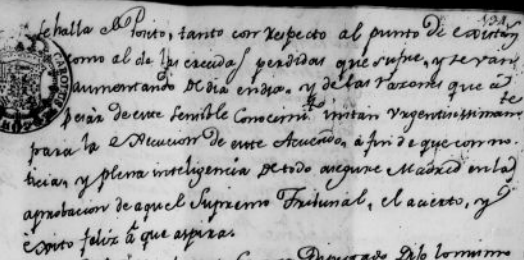 se halla el Posito, tanto con respecto al punto de
como al de las crecidas perdidas que sufre, y se van
aumentando de dia en dia, y de las razones que á
pesar de este sensible Conocim.to instan Urgentisimam.te
para la execucion de este Acuerdo, á fin de que con no-
ticia, y plena inteligencia de todo asegure Madrid en la
aprobacion de aquel Supremo Tribunal, el acierto, y
exito feliz á que aspira.
Diputado del Comun